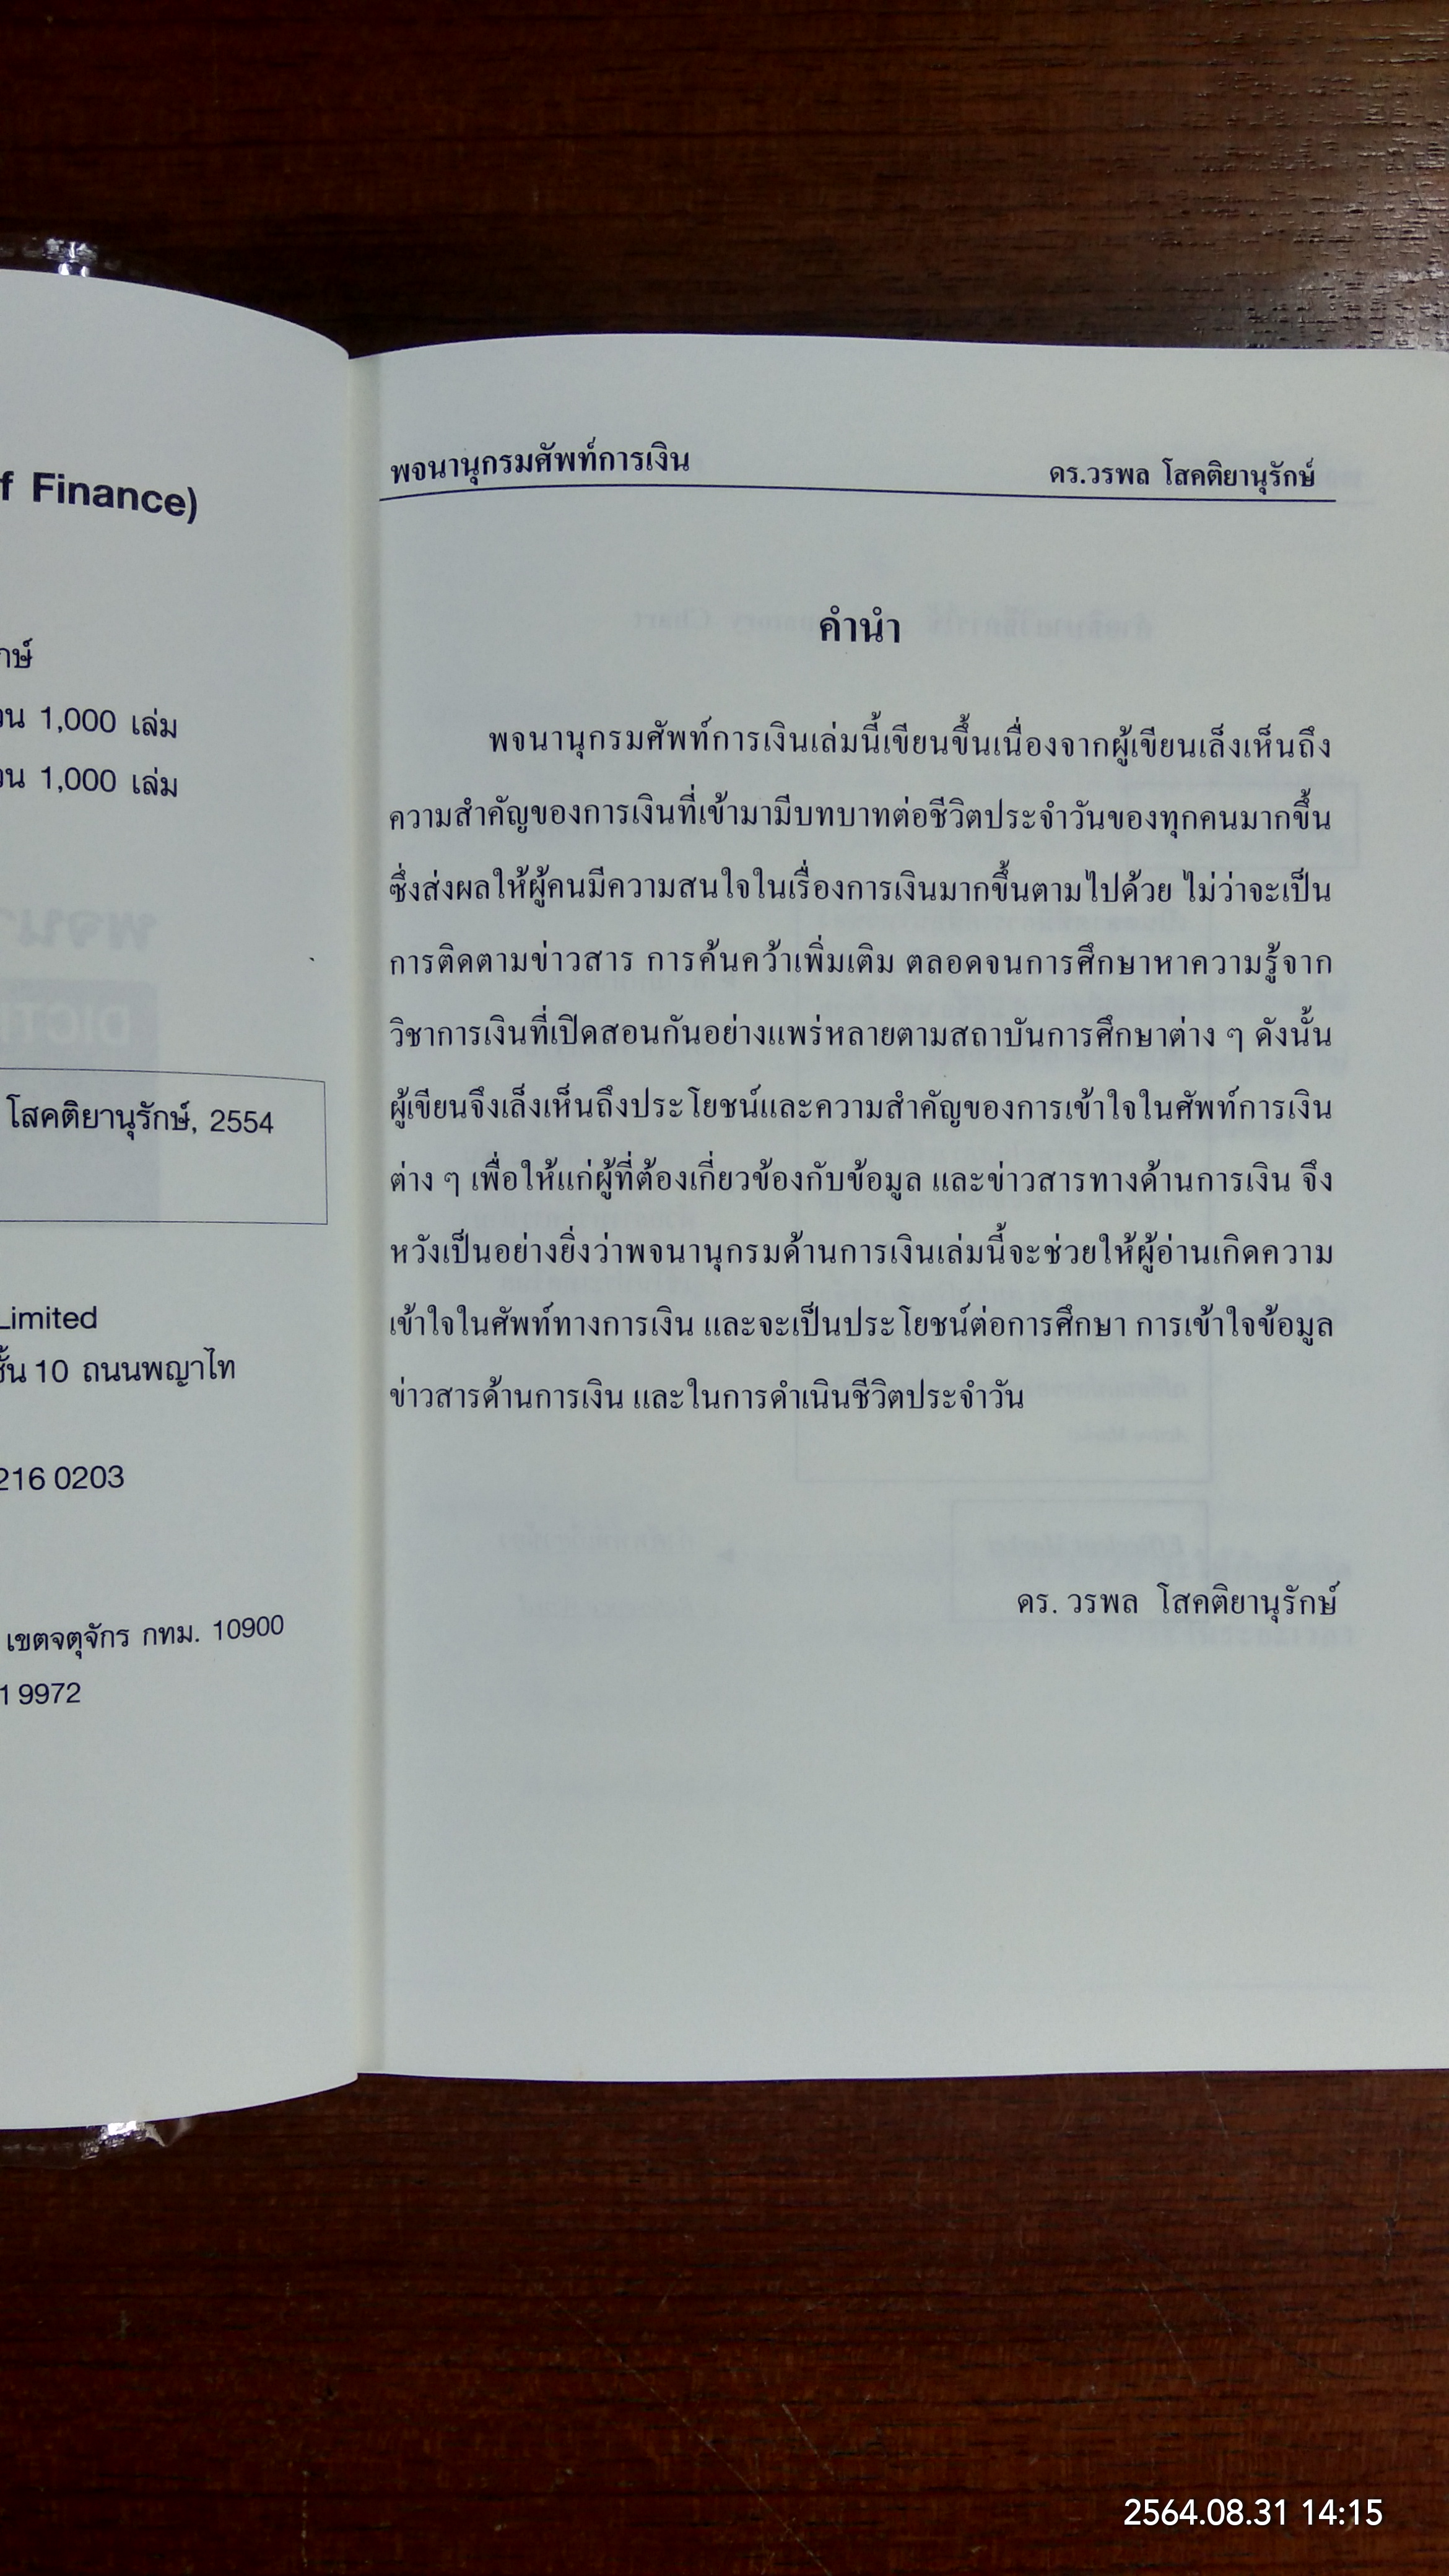 f Finance)
กษ์
วน 1,000 เล่ม
วน 1,000 เล่ม
โสคติยานุรักษ์, 2554
Limited
ชั้น 10 ถนนพญาไท
216 0203
เขตจตุจักร กทม. 10900
1 9972
พจนานุกรมศัพท์การเงิน ดร.วรพล โสคติยานุรักษ์
คำนำ
พจนานุกรมศัพท์การเงินเล่มนี้เขียนขึ้นเนื่องจากผู้เขียนเล็งเห็นถึง
ความสำคัญของการเงินที่เข้ามามีบทบาทต่อชีวิตประจำวันของทุกคนมากขึ้น
ซึ่งส่งผลให้ผู้คนมีความสนใจในเรื่องการเงินมากขึ้นตามไปด้วย ไม่ว่าจะเป็น
การติดตามข่าวสาร การค้นคว้าเพิ่มเติม ตลอดจนการศึกษาหาความรู้จาก
วิชาการเงินที่เปิดสอนกันอย่างแพร่หลายตามสถาบันการศึกษาต่าง ๆ ดังนั้น
ผู้เขียนจึงเล็งเห็นถึงประโยชน์และความสำคัญของการเข้าใจในศัพท์การเงิน
ต่าง ๆ เพื่อให้แก่ผู้ที่ต้องเกี่ยวข้องกับข้อมูล และข่าวสารทางด้านการเงิน จึง
หวังเป็นอย่างยิ่งว่าพจนานุกรมด้านการเงินเล่มนี้จะช่วยให้ผู้อ่านเกิดความ
เข้าใจในศัพท์ทางการเงิน และจะเป็นประโยชน์ต่อการศึกษา การเข้าใจข้อมูล
ข่าวสารด้านการเงิน และในการดำเนินชีวิตประจำวัน
ดร. วรพล โสคติยานุรักษ์
2564.08.31 14:15